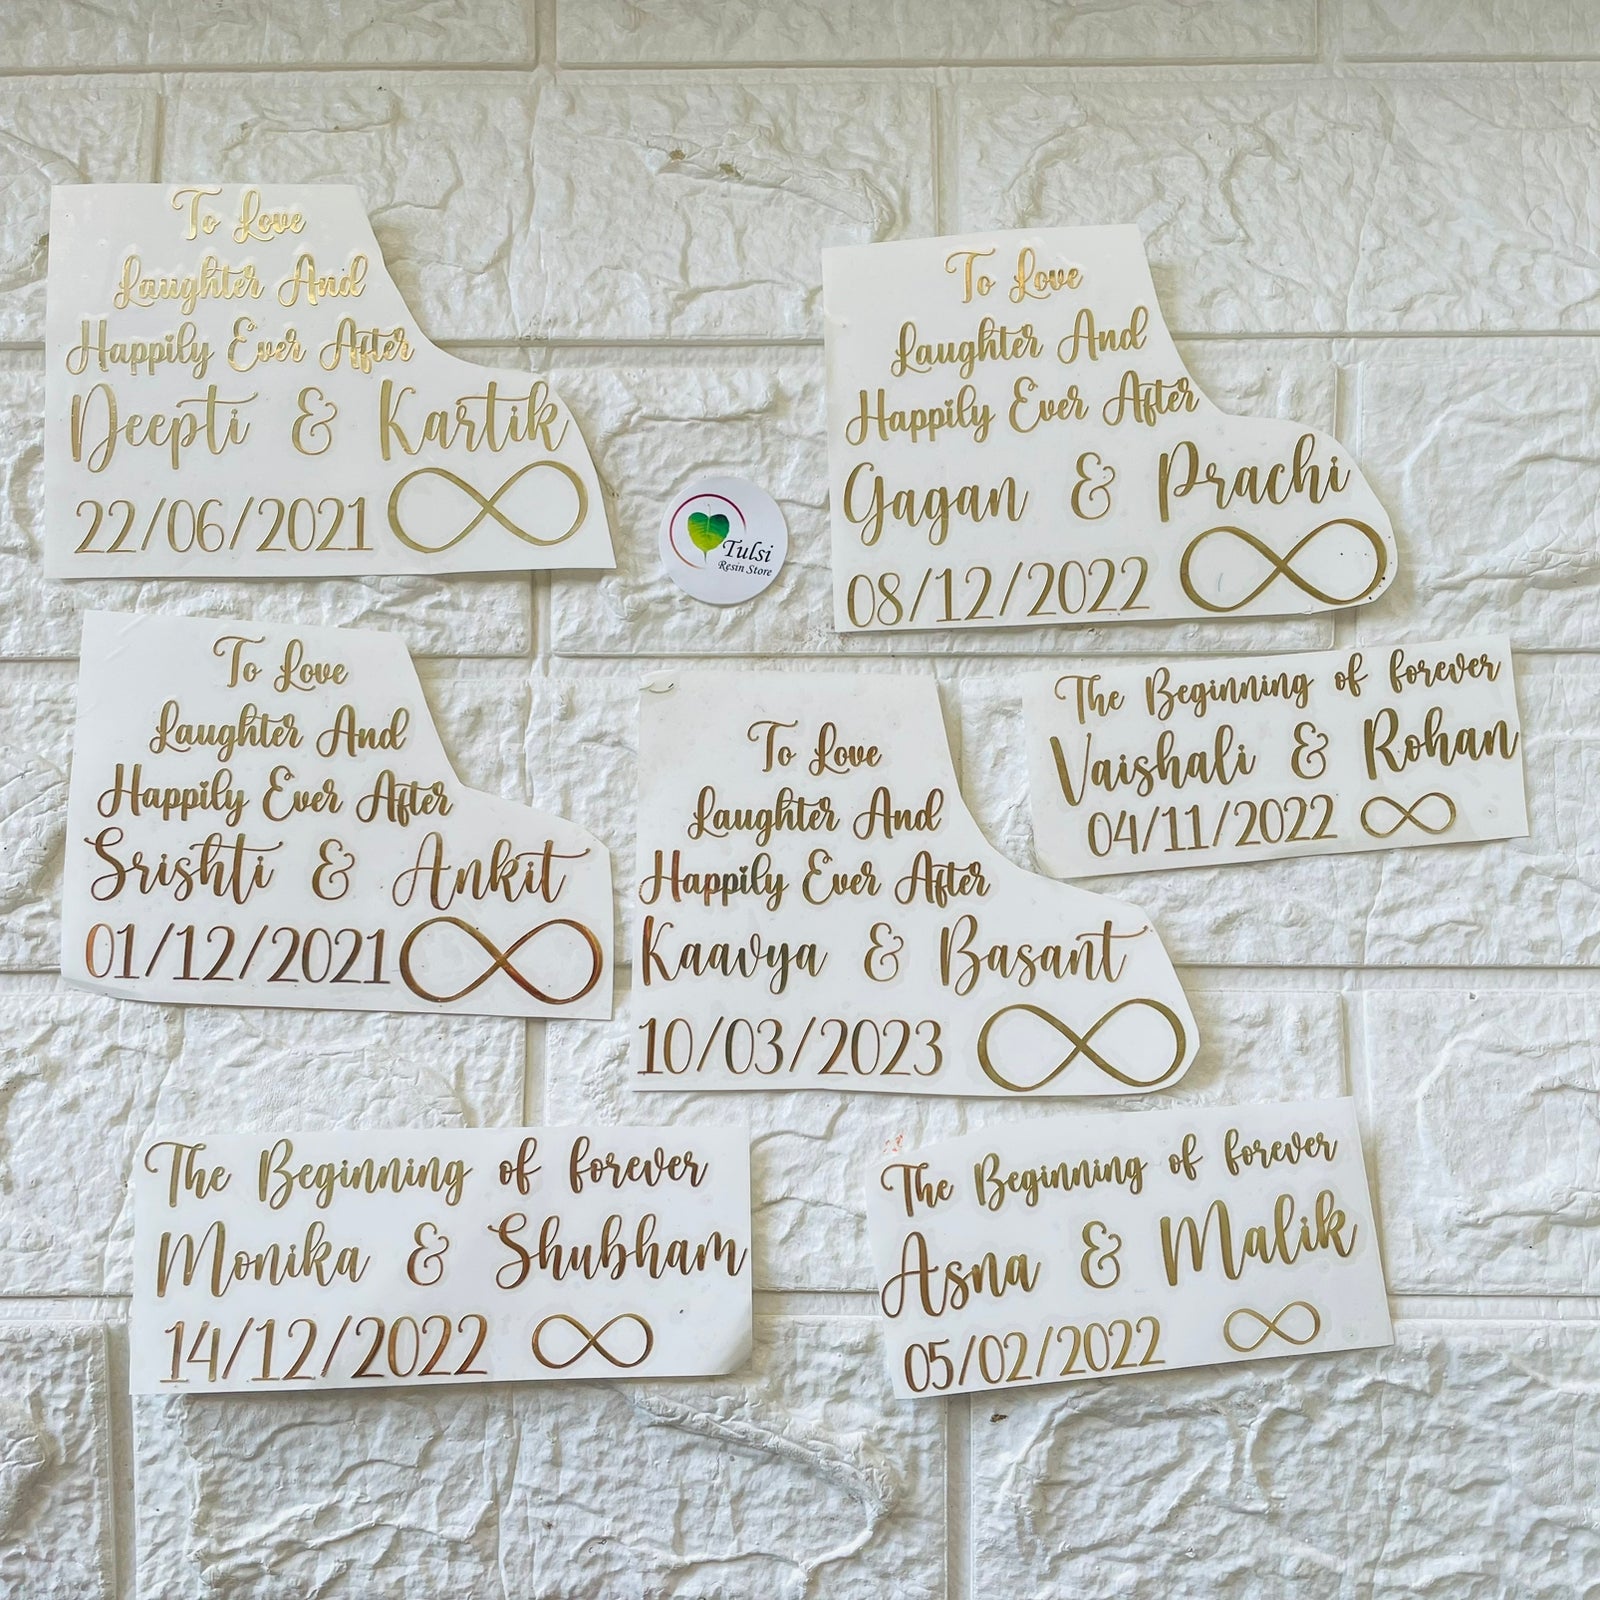 To Love
Laughter And
Happily Ever After
Deepti & Kartik
22/06/2021
Tulsi
Resin Store
To Love
Laughter And
Happily Ever After
Gagan & Prachi
08/12/2022
To Love
Laughter And
Happily Ever After
Srishti & Ankit
01/12/2021
To Love
Laughter And
Happily Ever After
Kaavya & Basant
10/03/2023
The Beginning of forever
Vaishali & Rohan
04/11/2022
The Beginning of forever
Monika & Shubham
14/12/2022
The Beginning of forever
Asna & Malik
05/02/2022